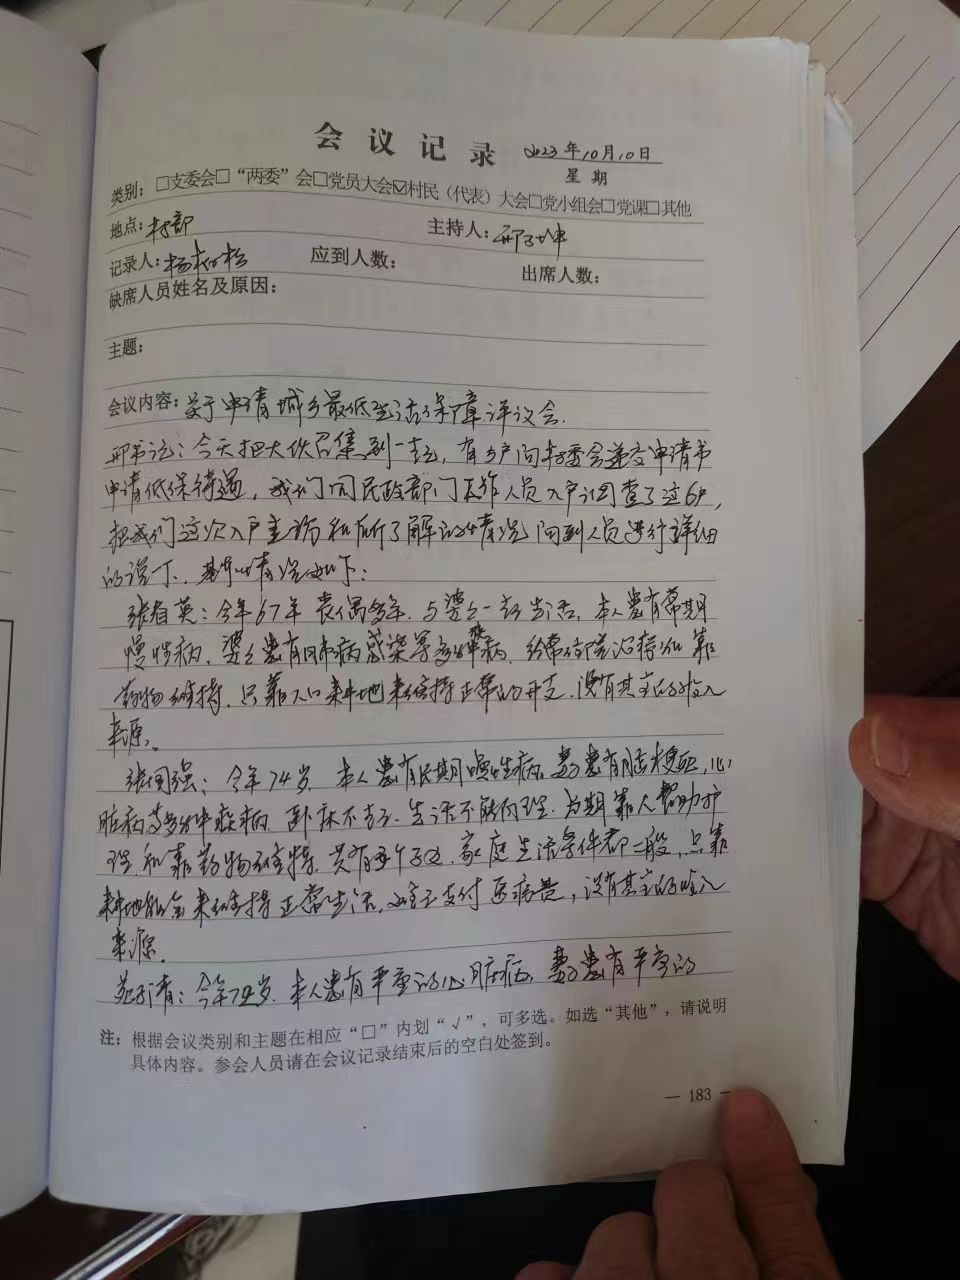 会议记录 2023年10月10日
星期
类别：□支委会□“两委”会□党员大会☑村民（代表）大会□党小组会□党课□其他
地点：村部 主持人：邢
记录人：杨 应到人数： 出席人数：
缺席人员姓名及原因：
主题：
会议内容：关于申请城乡最低生活保障评议会.
邢书记：今天把大伙召集到一起，有6户向村委会递交申请书
申请低保待遇，我们同民政部门工作人员入户调查了这6户，
把我们这次入户走访和所了解的情况向到人员进行详细
的说一下、其体情况如下：
张春英：今年67年 丧偶多年、与婆婆一起生活，本人患有常期
慢性病、婆婆患有 病感染等多种病、经常 靠
药物维持、只靠人口耕地来维持正常的开支、没有其它的收入
来源。
张国强：今年74岁、本人患有长期慢性病、妻子患有脑梗、心
脏病等多种疾病、卧床不起、生活不能自理、长期靠人帮助护
理和靠药物维持、共有 个子女、家庭生活条件都一般、只靠
耕地 来维持正常生活、难已支付医疗费，没有其它的收入
来源.
清：今年74岁、本人患有严重的心脏病、妻子患有严重的
注：根据会议类别和主题在相应“□”内划“√”，可多选。如选“其他”，请说明
具体内容。参会人员请在会议记录结束后的空白处签到。
— 183 —